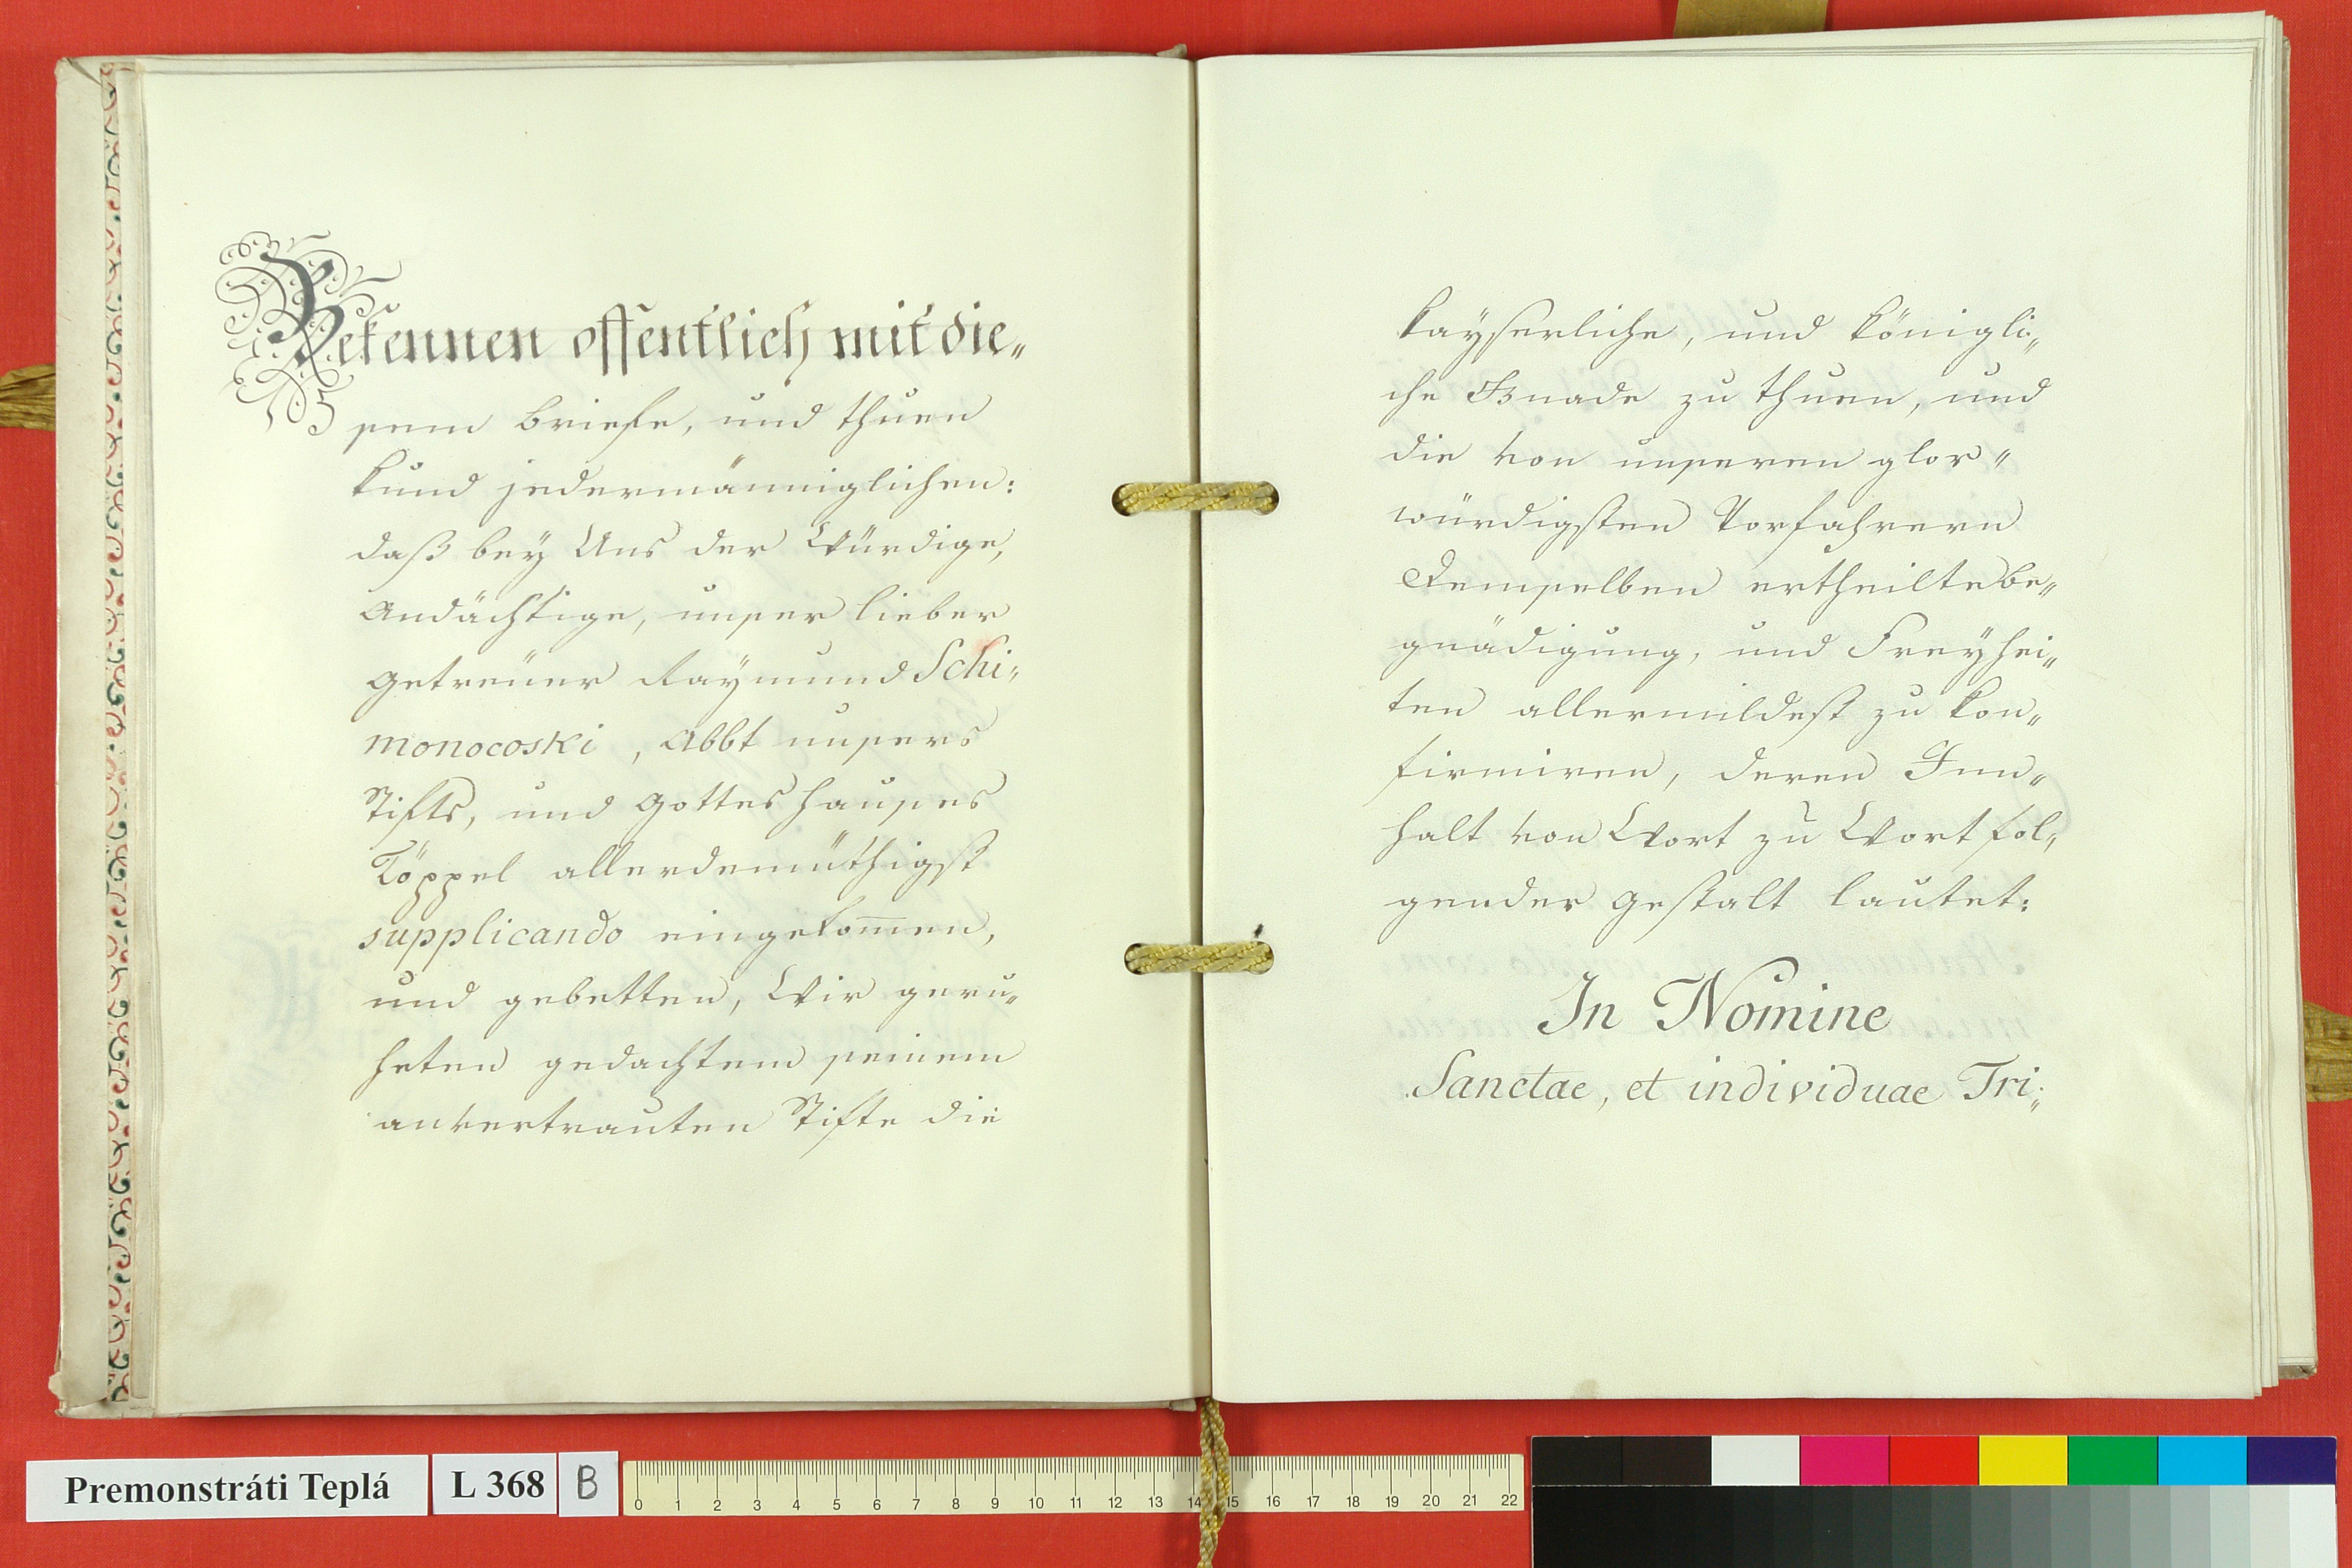 Bekennen offentlich mit die„
sem briefe, und thuen
kund jedermänniglichen:
daß bey Uns der Würdige,
Andächtige, unser lieber
getreüer Raymund Schi„
monocoski, Abbt unsers
Stifts, und Gotteshauses
Töppel allerdemüthigst
supplicando eingekom̄en,
und gebetten, Wir geru„
heten gedachtem seinem
anvertrauten Stifte die
kayserliche, und königli„
che Gnade zu thuen, und
die von unseren glor„
würdigsten Vorfahrern
Demselben ertheilte be„
gnädigung, und Freyhei„
ten allermildest zu kon„
firmiren, deren Inn„
halt von Wort zu Wort fol„
gender gestalt lautet:
In Nomine
Sanctae, et individuae Tri„
Premonstráti Teplá L 368 B
0 1 2 3 4 5 6 7 8 9 10 11 12 13 14 15 16 17 18 19 20 21 22